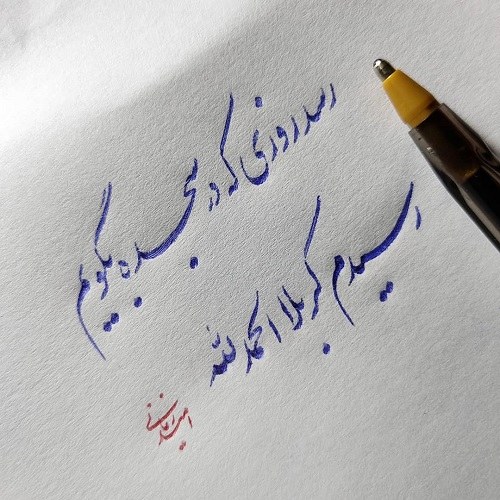 رسد روزی که در سجده بگویم
رسیدم کربلا الحمدلله